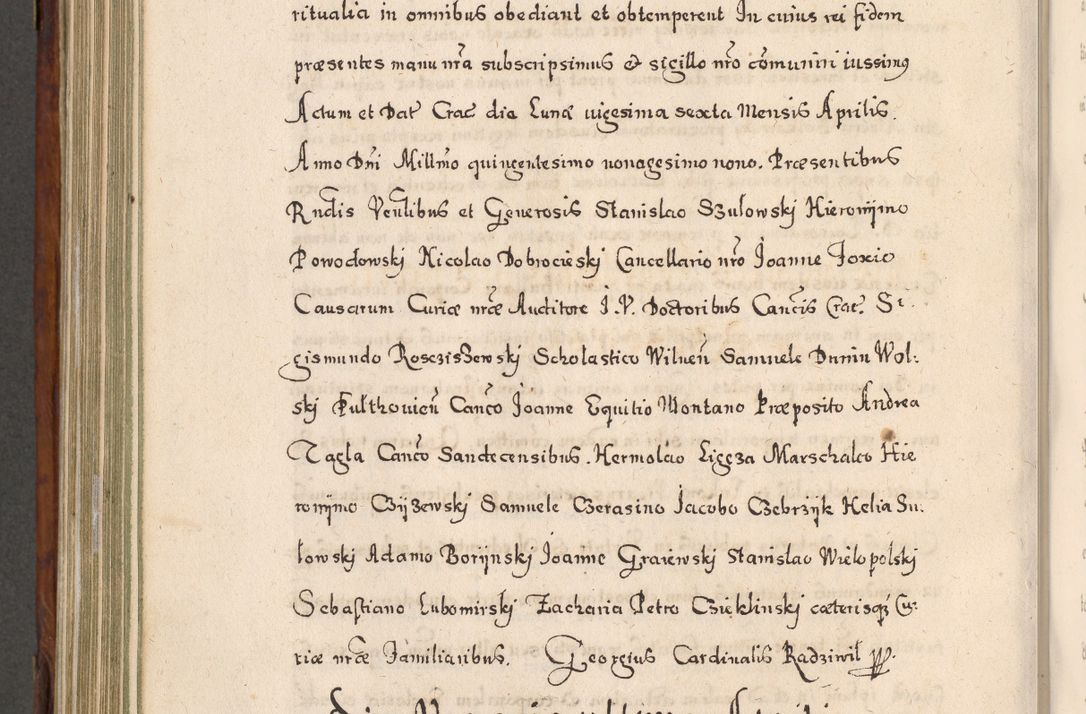 ritualia in omnibus obediant et obtemperent In cuius rei fidem
præsentes manu nrã subscripsimus & sigillo nrõ cõmuniri iussimus
Actum et Dat Crac die Lunæ uigesima sexta Mensis Aprilis.
Anno Dni Millmo quingentesimo nonagesimo nono. Præsentibus
Rndis Venlibus et Generosis Stanislao Szulowskj Hieronijmo
Powodowskj Nicolao Dobrocieskj Cancellario nrõ Joanne Foxio
Causarum Curiæ nræ Auditore J. V. Doctoribus Cancis Crac. Si-
gismundo Rosczisзewskj Scholastico Wilnen Samuele Dunin Wol-
skj Pulthouien Canco Joanne Equitio Montano Præposito Andrea
Tagla Canco Sandecensibus. Hermolao Ligęza Marschalco Hie
ronijmo Czyżewskj Samuele Czerasino Jacobo Czebrzyk Helia Su-
łowskj Adamo Borijnskj Joanne Graiewskj Stanislao Wielopolskj
Sebastiano Lubomirskj Zacharia Petro Czieklinskj cæterisq; Cu-
riæ nræ Familiaribus. Georgius Cardinalis Radziwil